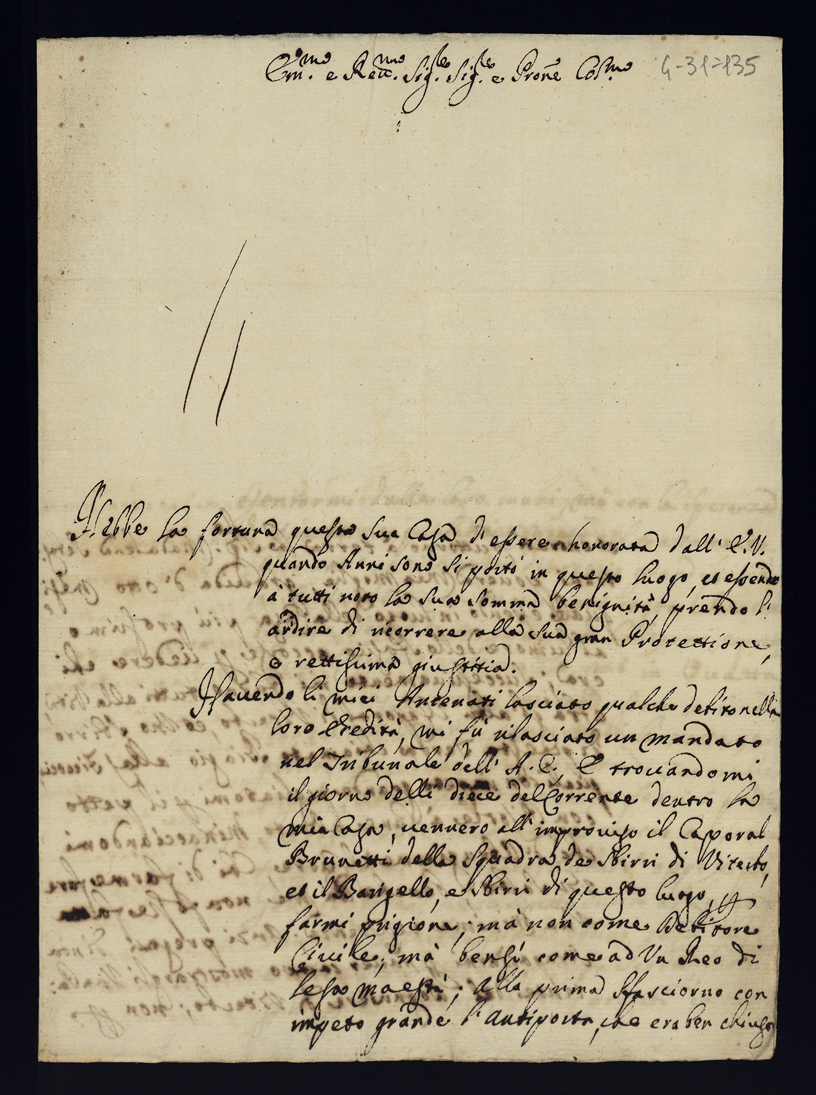 Em.mo e Rev.mo Sig.re Sig.re e Prone Col.mo 4-31-135
Hebbe la fortuna questa sua Casa d'essere honorata dall'E.V.
quando Anni sono si portò in questo luogo, et essendo
à tutti noto la sua somma benignità, prendo l'
ardire di ricorrere alla sua gran Protettione,
e rettissima giustitia.
Havendo li miei Antenati lasciato qualche debito nella
loro Eredità, mi fù rilasciato un mandato
nel Tribunale dell'A.C., E trovandomi
il giorno delli diece del Corrente dentro la
mia Casa, vennero all'improviso il Caporal
Brunetti della Squadra de Sbirri di Viterbo,
et il Barigello, e Sbirri di questo luogo, p
farmi prigione, mà non come Debitore
Civile, mà bensì come ad Un Reo di
lesa maestà; Alla prima sfasciorno con
impeto grande l'antiporta, che era ben chiusa